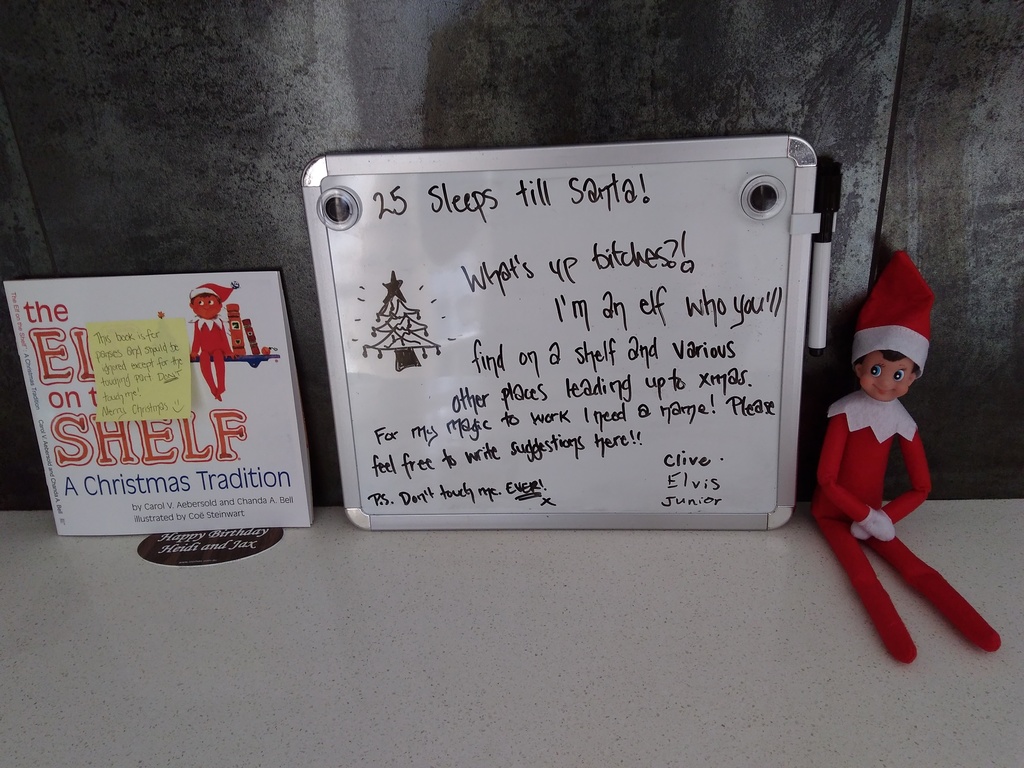 the
EL
on t
SHELF
A Christmas Tradition
by Carol V. Aebersold and Chanda A. Bell
illustrated by Coë Steinwart
This book is for
and should be
ignored except for the
touching part DON'T
touch me!
Merry Christmas
Happy Birthday
Heidi and Jax
25 Sleeps till Santa!
What's up bitches?!
I'm an elf who you'll
find on a shelf and various
other places leading up to xmas.
For my magic to work I need a name! Please
feel free to write suggestions here!!
P.S. Don't touch me. EVER!
x
Clive.
Elvis
Junior